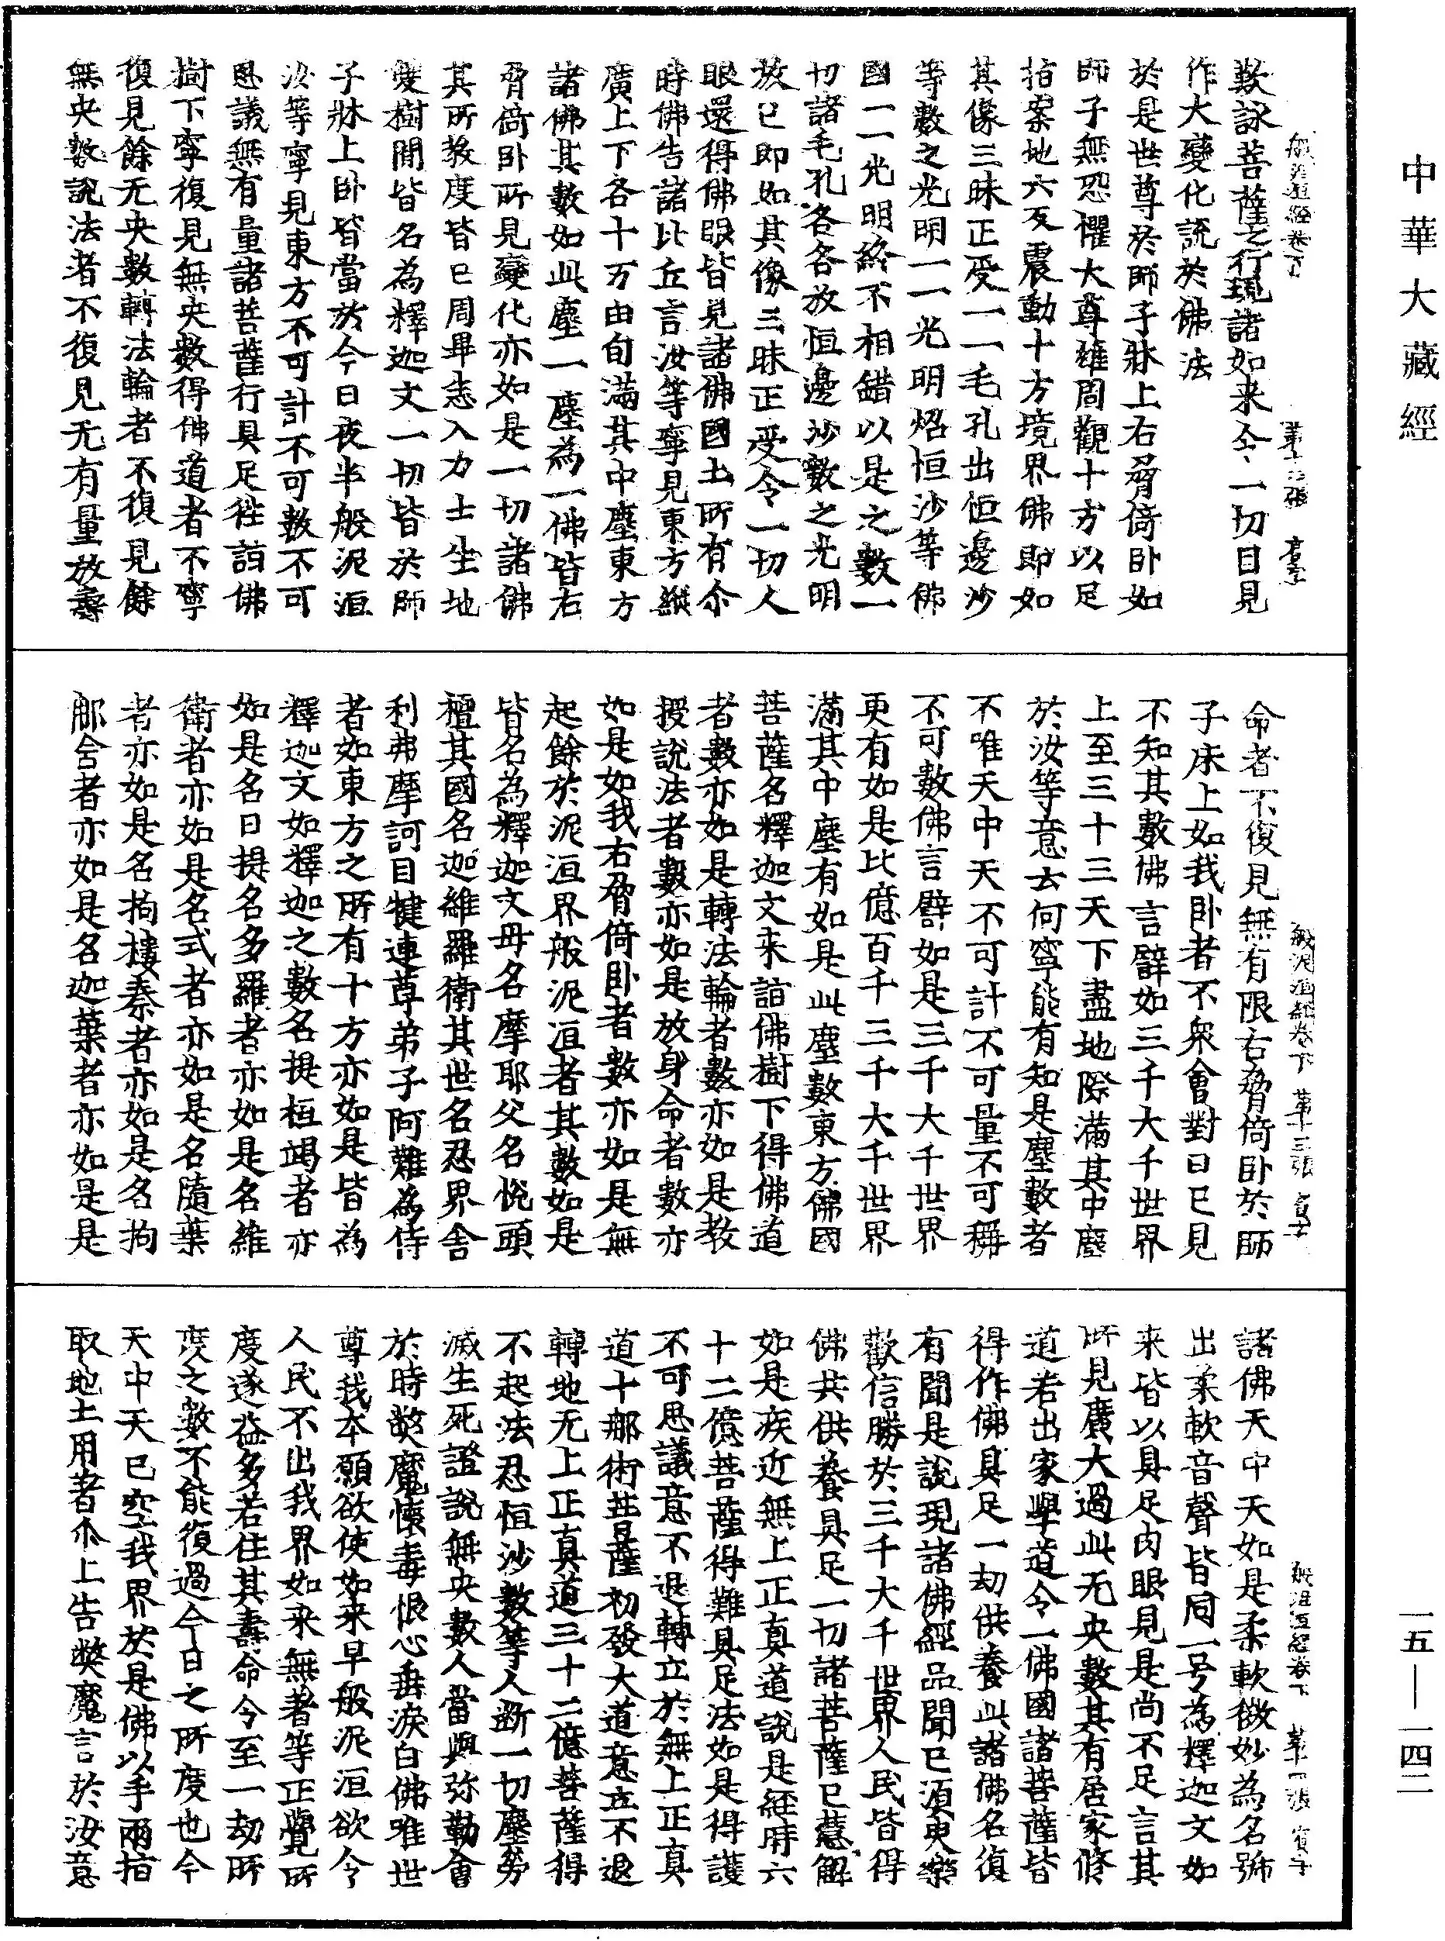 中華大藏經
歎詠菩薩之行現諸如来令一切目見
作大變化說於佛法
於是世尊於師子牀上右脅倚卧如
師子無恐懼大尊雄周觀十方以足
指案地六反震動十方境界佛即如
其像三昧正受一一毛孔出恒邊沙
等數之光明一一光明焰恒沙等佛
國一一光明終不相錯以是之數一
切諸毛孔各各放恒邊沙數之光明
放已即如其像三昧正受令一切人
眼還得佛眼皆見諸佛國土所有尒
時佛告諸比丘言汝等寧見東方縱
廣上下各十万由旬滿其中塵東方
諸佛其數如此塵一塵為一佛皆右
脅倚卧所見變化亦如是一切諸佛
其所教度皆已周畢悉入力士生地
雙樹間皆名為釋迦文一切皆於師
子牀上卧皆當於今日夜半般泥洹
汝等寧見東方不可計不可數不可
思議無有量諸菩薩行具足往詣佛
樹下寧復見無央數得佛道者不寧
復見餘无央數轉法輪者不復見餘
無央數說法者不復見无有量放壽
命者不復見無有限右脅倚卧於師
子床上如我卧者不衆會對曰已見
不知其數佛言譬如三千大千世界
上至三十三天下盡地際滿其中塵
於汝等意云何寧能有知是塵數者
不唯天中天不可計不可量不可稱
不可數佛言譬如是三千大千世界
更有如是比億百千三千大千世界
滿其中塵有如是此塵數東方佛國
菩薩名釋迦文来詣佛樹下得佛道
者數亦如是轉法輪者數亦如是教
授說法者數亦如是放身命者數亦
如是如我右脅倚卧者數亦如是無
起餘於泥洹界般泥洹者其數如是
皆名為釋迦文母名摩耶父名悅頭
檀其國名迦維羅衛其世名忍界舍
利弗摩訶目揵連尊弟子阿難為侍
者如東方之所有十方亦如是皆為
釋迦文如釋迦之數名提桓竭者亦
如是名曰提名多羅者亦如是名維
衛者亦如是名式者亦如是名隨葉
者亦如是名拘樓秦者亦如是名拘
那舍者亦如是名迦葉者亦如是是
諸佛天中天如是柔軟微妙為名號
出柔軟音聲皆同一号為釋迦文如
来皆以具足肉眼見是尚不足言其
所見廣大過此无央數其有居家修
道若出家學道令一佛國諸菩薩皆
得作佛具足一劫供養此諸佛名復
有聞是說現諸佛經品聞已須臾樂
歡信勝於三千大千世界人民皆得
佛共供養具足一切諸菩薩已慧解
如是疾近無上正真道說是經時六
十二億菩薩得難具足法如是得護
不可思議意不退轉立於無上正真
道十那術菩薩初發大道意立不退
轉地无上正真道三十二億菩薩得
不起法忍恒沙數等人斷一切塵勞
滅生死證說無央數人當與弥勒會
於時弊魔懷毒恨心垂淚白佛唯世
尊我本願欲使如来早般泥洹欲令
人民不出我界如来無著等正覺所
度遂益多若住其壽命令至一劫所
度之數不能復過今日之所度也今
天中天已空我界於是佛以手兩指
取地土用著爪上告弊魔言於汝意
般泥洹經卷下 第十三張
一五—一四二